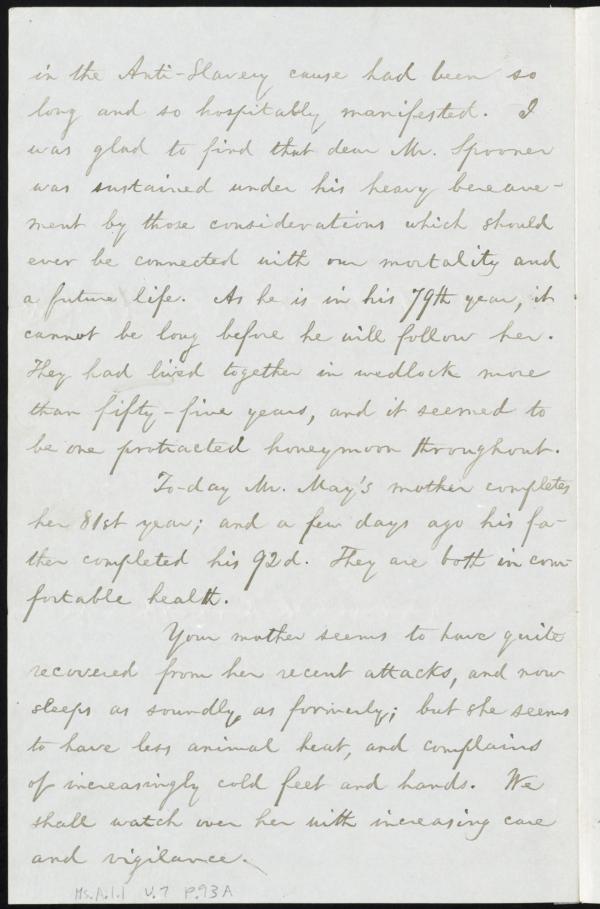 in the Anti-Slavery cause had been so
long and so hospitably manifested. I
was glad to find that dear Mr. Spooner
was sustained under his heavy bereave-
ment by those considerations which should
ever be connected with our mortality and
a future life. As he is in his 79th year, it
cannot be long before he will follow her.
They had lived together in wedlock more
than fifty-five years, and it seemed to
be one protracted honeymoon throughout.
To-day Mr. May's mother completes
her 81st year; and a few days ago his fa-
ther completed his 92d. They are both in com-
fortable health.
Your mother seems to have quite
recovered from her recent attacks, and now
sleeps as soundly as formerly; but she seems
to have less animal heat, and complains
of increasingly cold feet and hands. We
shall watch over her with increasing care
and vigilance.
Ms.A.1.1 V.7 P.93A